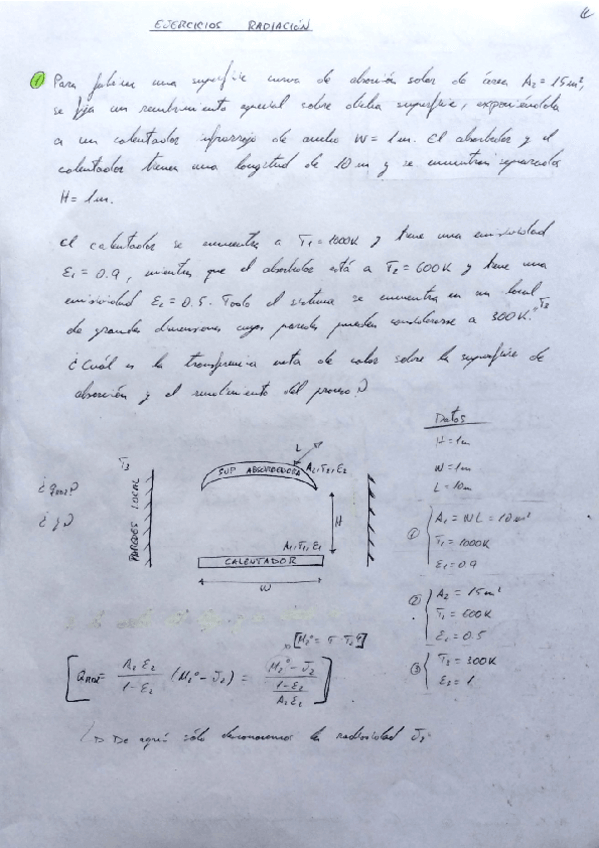 EJERCICIOS RADIACIÓN
① Para fabricar una superficie curva de absorción solar de área A₂ = 15 m²,
se fija un recubrimiento especial sobre dicha superficie, exponiéndola
a un calentador infrarrojo de ancho W = 1 m. El absorbedor y el
calentador tienen una longitud de 10 m y se encuentran separados
H = 1 m.
El calentador se encuentra a T₁ = 1000K y tiene una emisividad
ε₁ = 0.9, mientras que el absorbedor está a T₂ = 600K y tiene una
emisividad ε₂ = 0.5. Todo el sistema se encuentra en un local
de grandes dimensiones cuyas paredes pueden considerarse a 300K. T₃
¿Cuál es la transferencia neta de calor sobre la superficie de
absorción y el rendimiento del proceso?
Datos
H = 1m
W = 1m
L = 10m
T₃
PAREDES LOCAL
SUP ABSORBEDORA
L
A₂, T₂, ε₂
H
A₁, T₁, ε₁
CALENTADOR
W
① A₁ = WL = 10 m²
T₁ = 1000K
ε₁ = 0.9
② A₂ = 15 m²
T₂ = 600K
ε₂ = 0.5
③ T₃ = 300K
ε₃ = 1
= A₂ε₂ / 1-ε₂ (M₂° - J₂) = M₂° - J₂ / 1-ε₂ / A₂ε₂
De aquí sólo desconocemos la radiosidad J₂